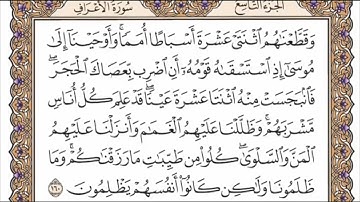 الجزء التاسع سورة الأعراف
وَقَطَّعْنَٰهُمُ ٱثْنَتَىْ عَشْرَةَ أَسْبَاطًا أُمَمًا ۚ وَأَوْحَيْنَآ إِلَىٰ
مُوسَىٰٓ إِذِ ٱسْتَسْقَىٰهُ قَوْمُهُۥٓ أَنِ ٱضْرِب بِّعَصَاكَ ٱلْحَجَرَ ۖ
فَٱنۢبَجَسَتْ مِنْهُ ٱثْنَتَا عَشْرَةَ عَيْنًا ۖ قَدْ عَلِمَ كُلُّ أُنَاسٍ
مَّشْرَبَهُمْ ۚ وَظَلَّلْنَا عَلَيْهِمُ ٱلْغَمَٰمَ وَأَنزَلْنَا عَلَيْهِمُ
ٱلْمَنَّ وَٱلسَّلْوَىٰ ۖ كُلُوا۟ مِن طَيِّبَٰتِ مَا رَزَقْنَٰكُمْ ۚ وَمَا
ظَلَمُونَا وَلَٰكِن كَانُوٓا۟ أَنفُسَهُمْ يَظْلِمُونَ ١٦٠